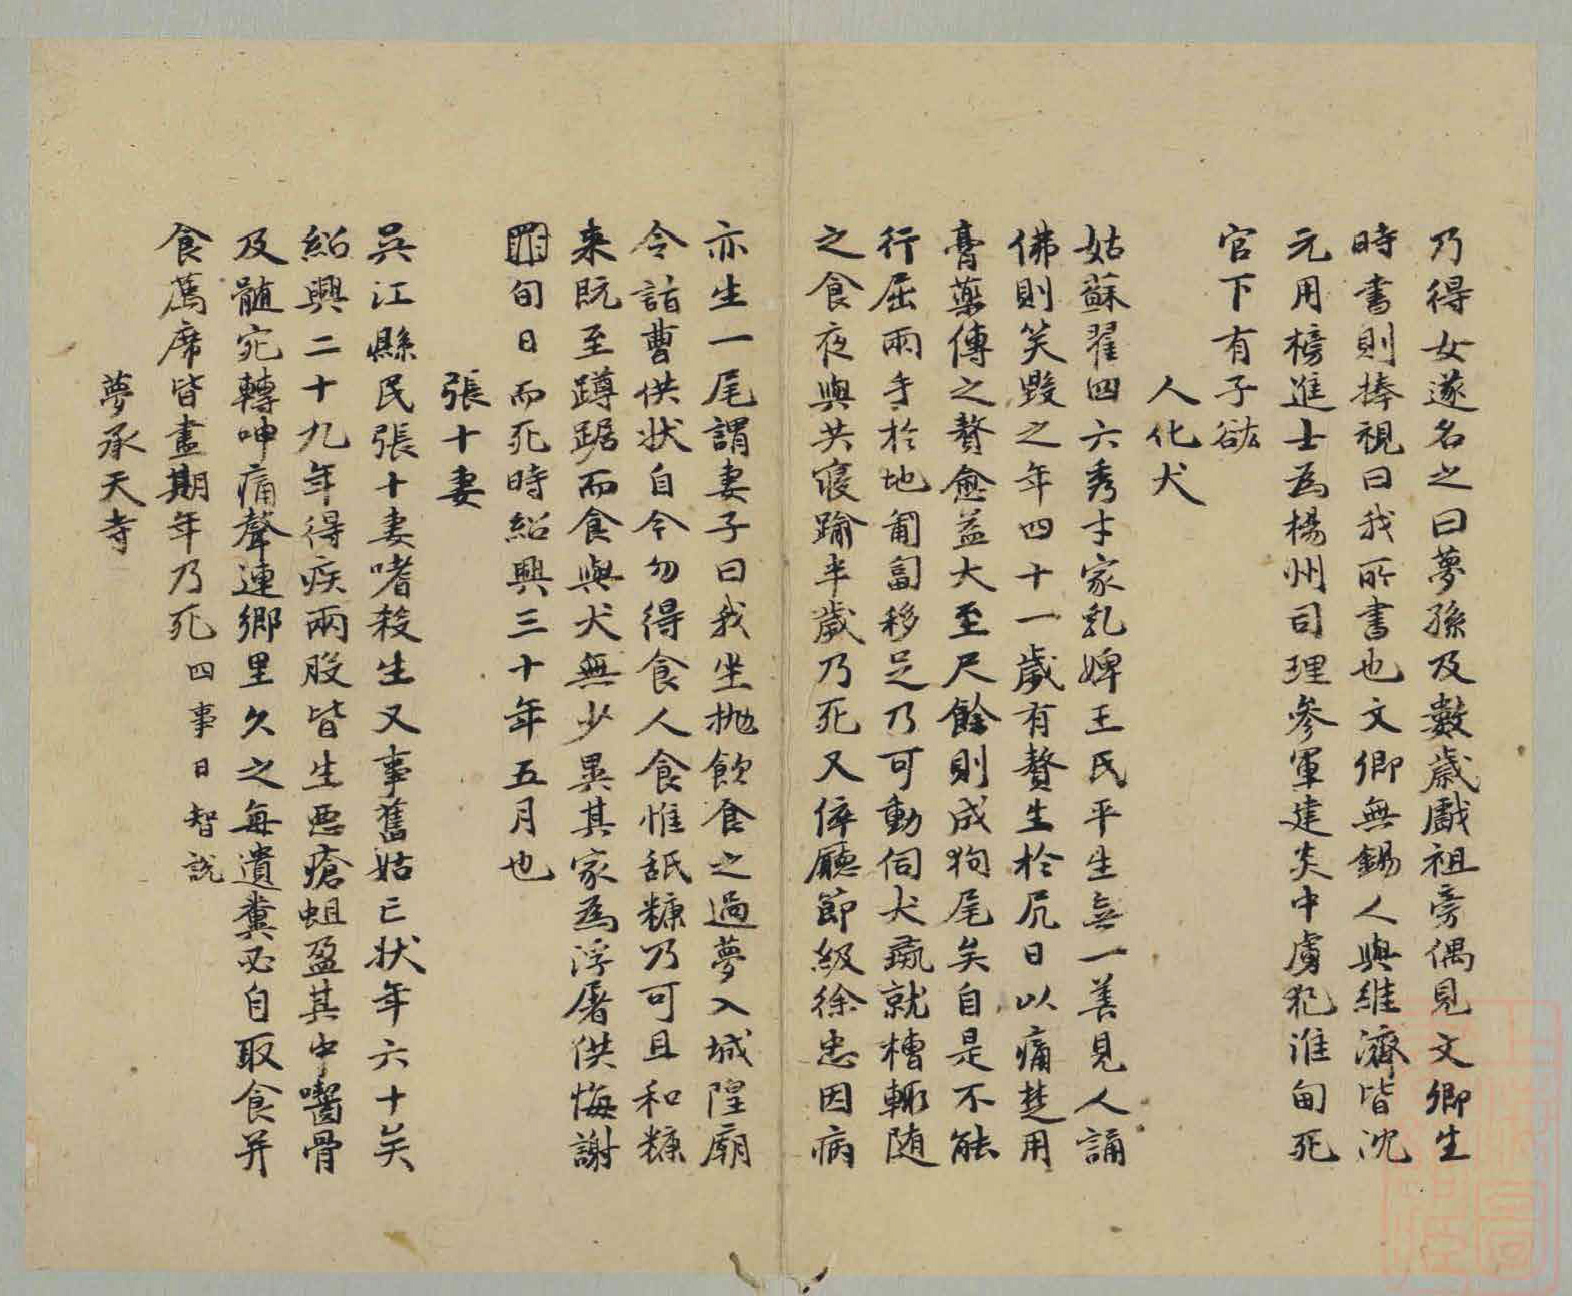 乃得女遂名之曰夢孫及數歲戲祖旁偶見文卿生
時書則捧視曰我所書也文卿無錫人與維濟皆沈
元用榜進士為楊州司理參軍建炎中虜犯淮甸死
官下有子紘
人化犬
姑蘇翟四六秀才家乳婢王氏平生無一善見人誦
佛則笑毀之年四十一歲有贅生於尻日以痛楚用
膏藥傅之贅愈益大至尺餘則成狗尾矣自是不能
行屈兩手於地匍匐移足乃可動伺犬彘就槽輙随
之食夜與共寢踰半歲乃死又倅廳節級徐忠因病
亦生一尾謂妻子曰我坐抛飲食之過夢入城隍廟
令詣曹供状自今勿得食人食惟舐糠乃可且和糠
来既至蹲踞而食與犬無少異其家為浮屠供悔謝
旬日而死時紹興三十年五月也
張十妻
吳江縣民張十妻嗜殺生又事舊姑亡状年六十矣
紹興二十九年得疾兩股皆生惡瘡蛆盈其中囓骨
及髓宛轉呻痛聲連鄉里久之每遺糞必自取食并
食薦席皆盡期年乃死四事日智説
夢承天寺